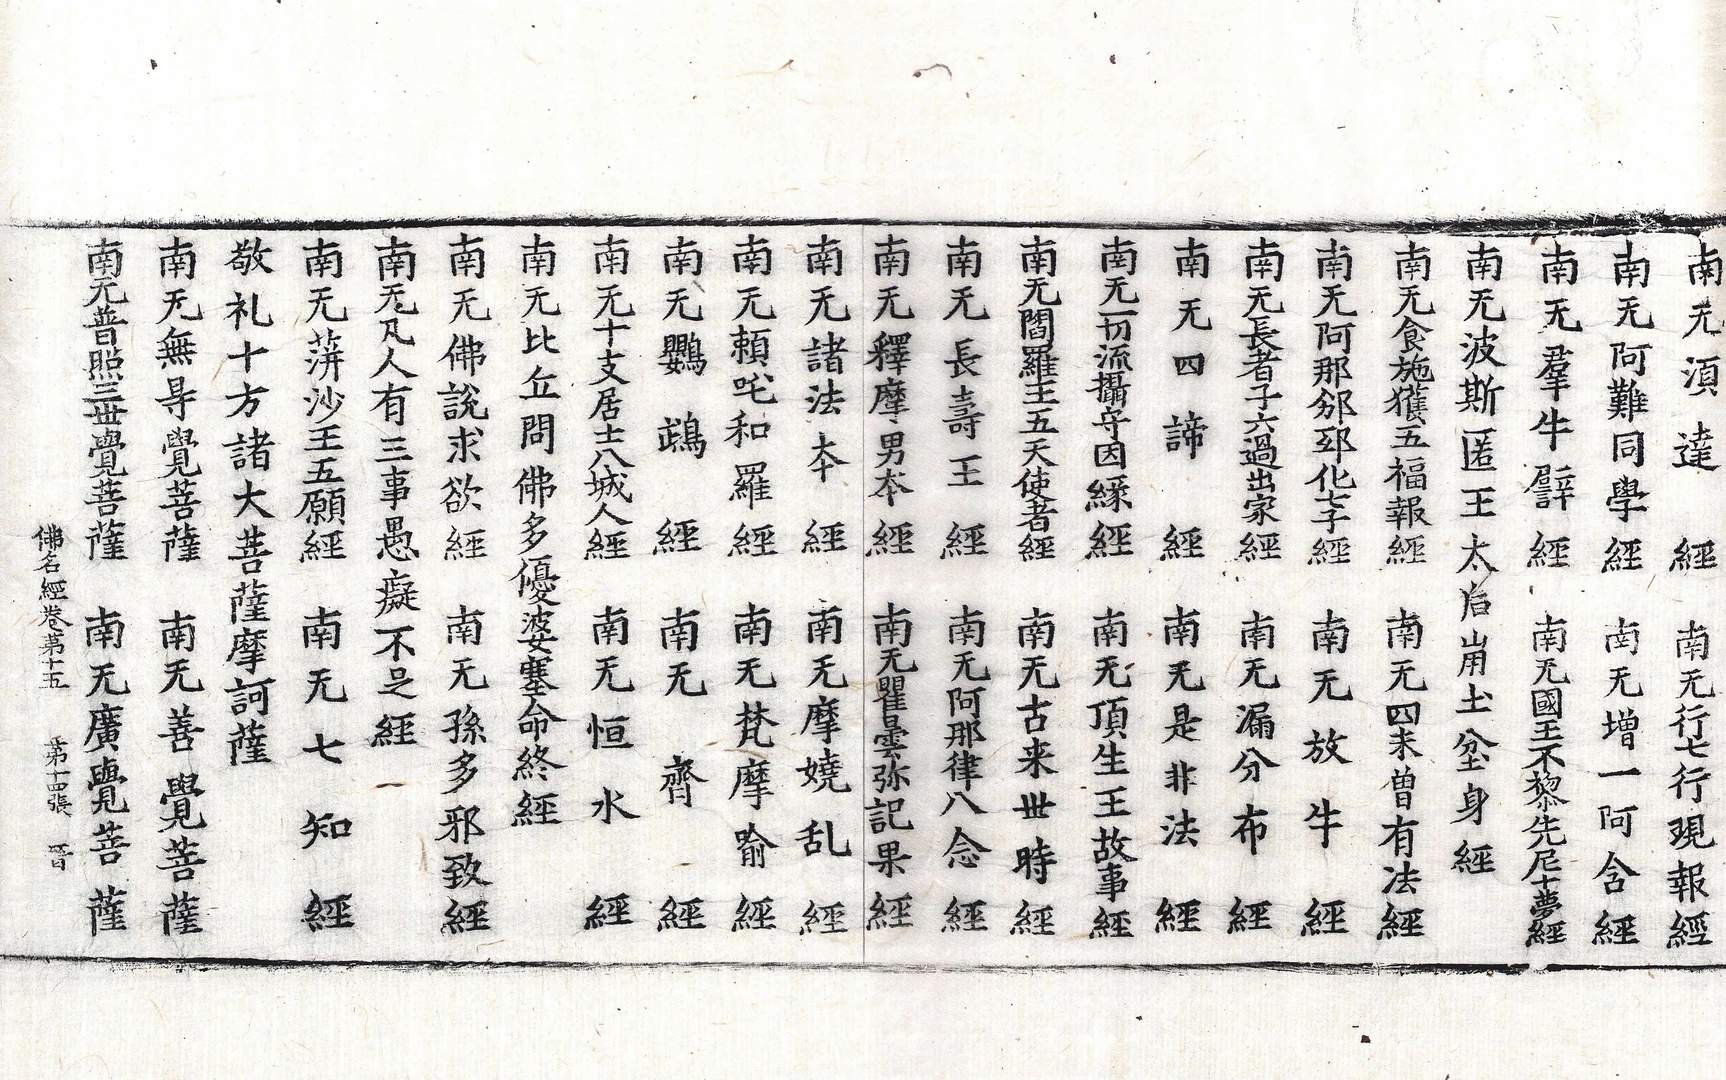 南无湏達經　南无行七行現報經
南无阿難同學經　南无增一阿含經
南无羣牛譬經　南无國王不黎先尼十夢經
南无波斯匿王太后崩土坌身經
南无食施獲五福報經　南无四未曾有法經
南无阿那邠邸化七子經　南无放牛經
南无長者子六過出家經　南无漏分布經
南无四諦經　南无是非法經
南无一切流攝守因緣經　南无頂生王故事經
南无閻羅王五天使者經　南无古来世時經
南无長壽王經　南无阿那律八念經
南无釋摩男夲經　南无瞿曇弥記果經
南无諸法夲經　南无摩嬈乱經
南无賴吒和羅經　南无梵摩喻經
南无鸚鵡經　南无齊經
南无十支居士八城人經　南无恒水經
南无比丘問佛多優波婆塞命終經
南无佛說求欲經　南无孫多邪致經
南无凡人有三事愚癡不足經
南无蓱沙王五願經　南无七知經
敬礼十方諸大菩薩摩訶薩
南无無㝵覺菩薩　南无善覺菩薩
南无普照三世覺菩薩　南无廣覺菩薩
佛名經卷第十五　第十四張